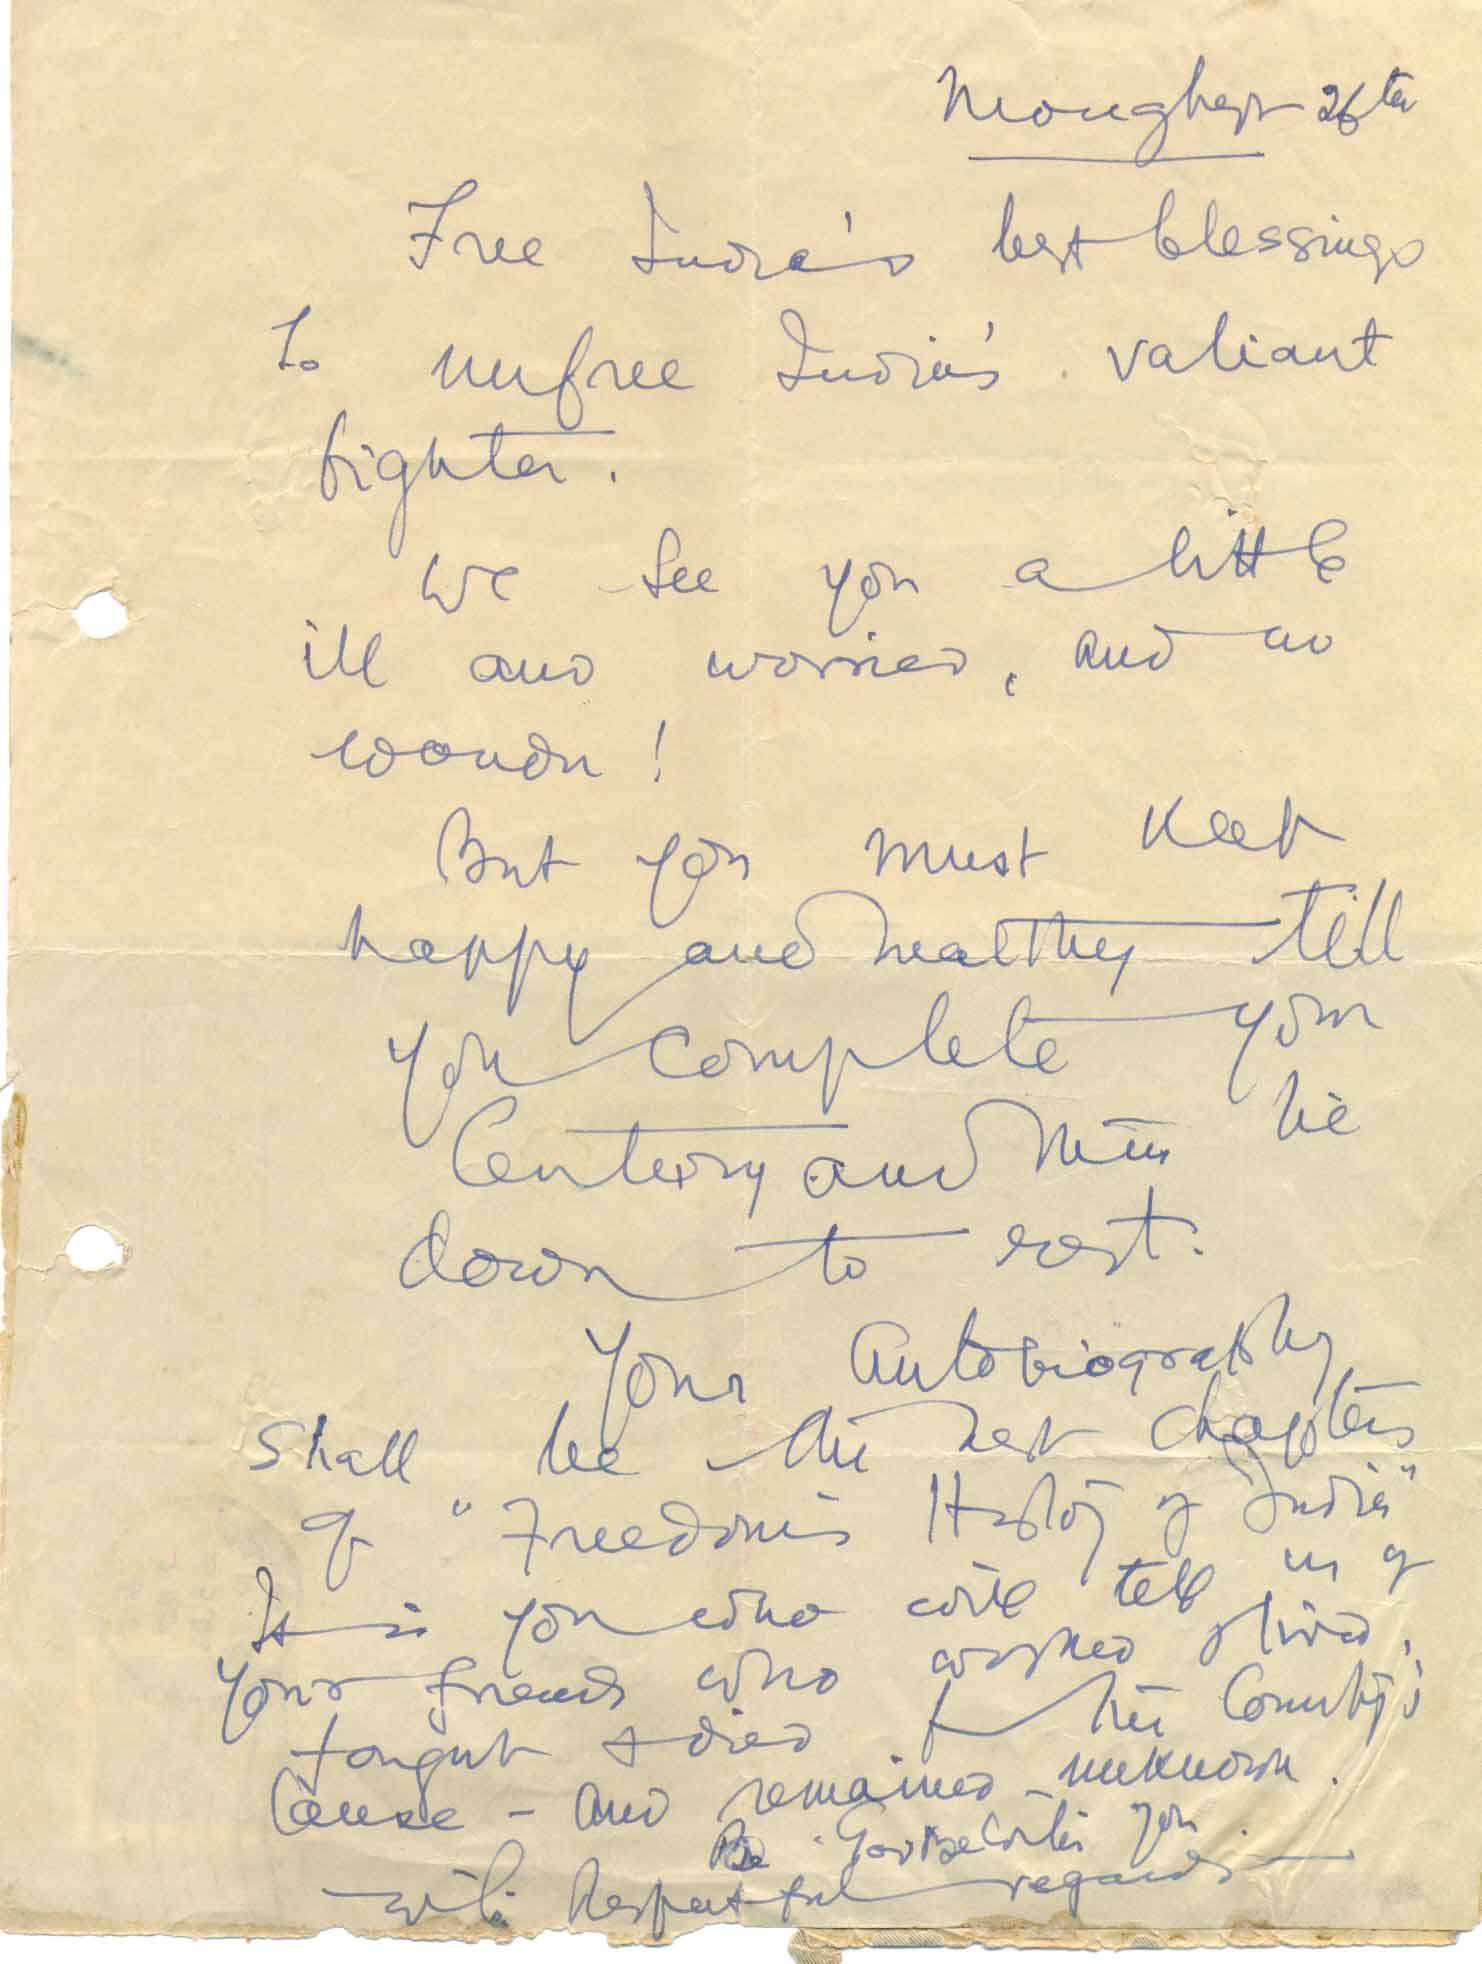 Monghyr 26th
Free India's best blessings
to unfree India's valiant
fighter.
We see you a little
ill and worried, and no
wonder!
But you must keep
happy and healthy till
you complete your
Century and then lie
down to rest.
Your Autobiography
shall be the best chapters
of "Freedom's History of India"
It is you who will tell us of
your friends who worked & lived,
fought & died for the Country's
Cause - and remained unknown.
Be God be with you
with Respectful regards